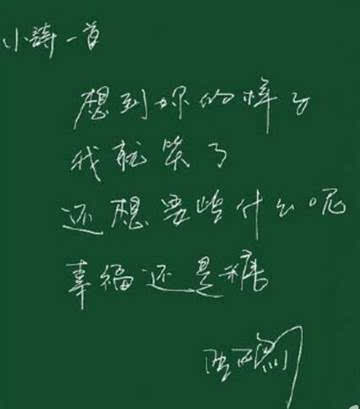 小诗一首
想到你的样子
我就笑了
还想要些什么呢
幸福还是糖